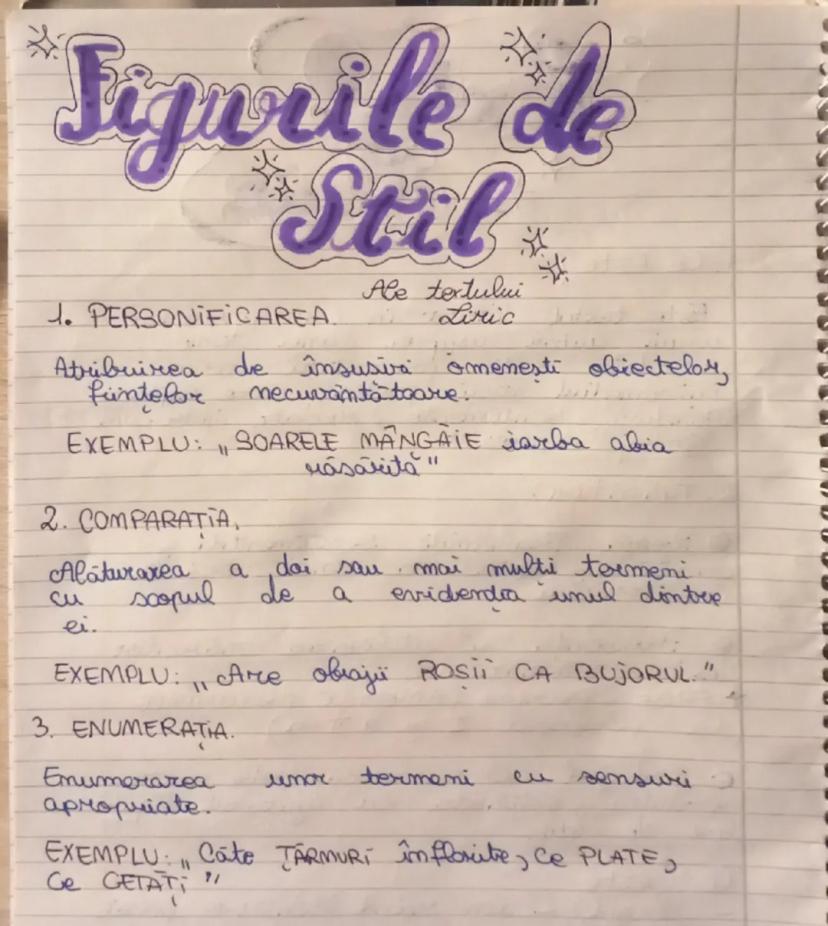 Figurile de
Stil
Ale textului
Liric
1. PERSONIFICAREA.
Atribuirea de însusiri omenești obiectelor,
ființelor necuvântătoare.
EXEMPLU: „SOARELE MÂNGÂIE iarba abia
răsărită"
2. COMPARAȚIA.
Alăturarea a doi sau mai multi termeni
cu scopul de a evidenția unul dintre
ei.
EXEMPLU: „Are obrajii ROȘII CA BUJORUL."
3. ENUMERAȚIA.
Enumerarea unor termeni cu sensuri
apropriate.
EXEMPLU: „Câte ȚĂRMURI înflorite, ce PLATE,
Ce CETĂȚI"